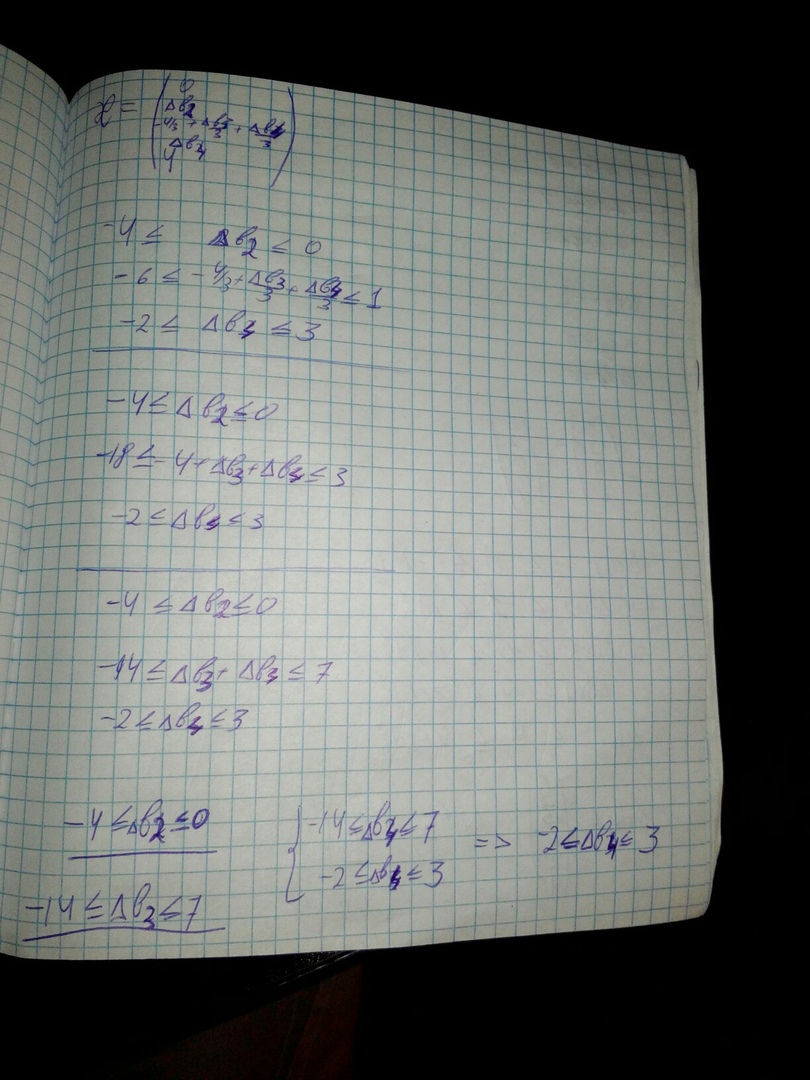 x = ( 0
Δb2
-4/3 + Δb3/3 + Δb4/3
Δb4
4 )
-4 ≤ Δb2 ≤ 0
-6 ≤ -4/3 + Δb3/3 + Δb4/3 ≤ 1
-2 ≤ Δb4 ≤ 3
-4 ≤ Δb2 ≤ 0
-18 ≤ -4 + Δb3 + Δb4 ≤ 3
-2 ≤ Δb4 ≤ 3
-4 ≤ Δb2 ≤ 0
-14 ≤ Δb3 + Δb4 ≤ 7
-2 ≤ Δb4 ≤ 3
-4 ≤ Δb2 ≤ 0
-14 ≤ Δb3 ≤ 7
{ -14 ≤ Δb4 ≤ 7
-2 ≤ Δb4 ≤ 3
=> -2 ≤ Δb4 ≤ 3